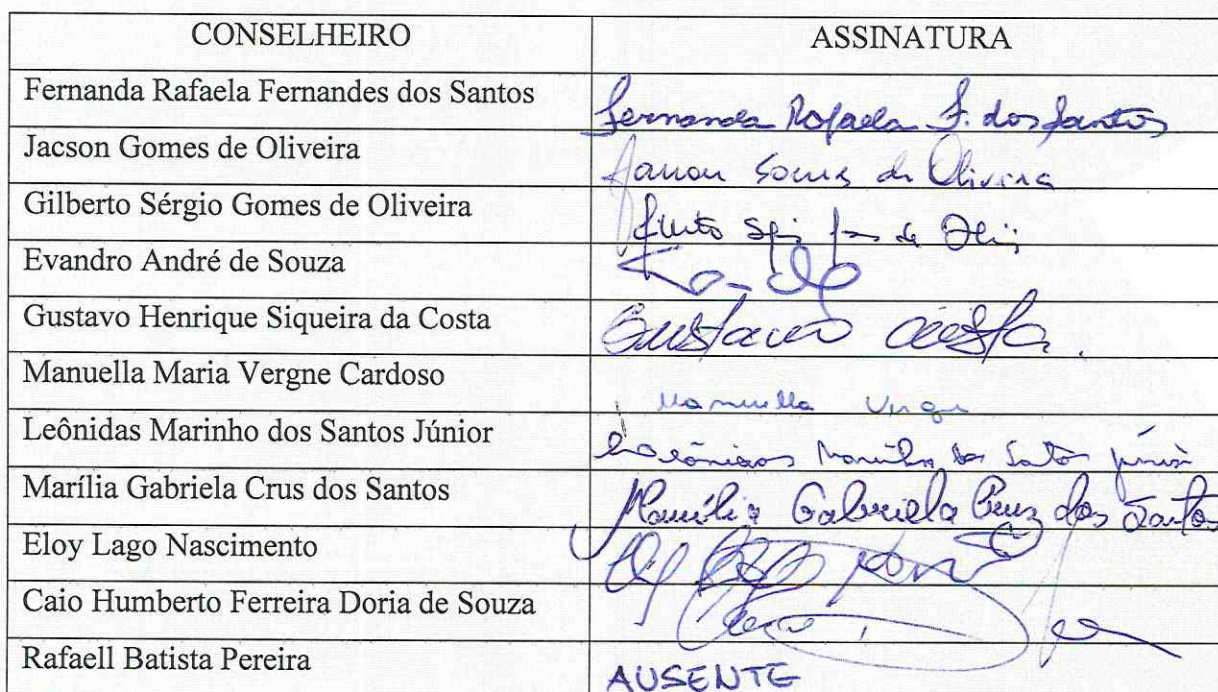 CONSELHEIRO ASSINATURA
Fernanda Rafaela Fernandes dos Santos Fernanda Rafaela F. dos Santos
Jacson Gomes de Oliveira Gomes de Oliveira
Gilberto Sérgio Gomes de Oliveira
Evandro André de Souza
Gustavo Henrique Siqueira da Costa Gustavo Costa.
Manuella Maria Vergne Cardoso Manuella
Leônidas Marinho dos Santos Júnior Leônidas Marinho dos Santos Júnior
Marília Gabriela Crus dos Santos Marília Gabriela Cruz dos Santos
Eloy Lago Nascimento
Caio Humberto Ferreira Doria de Souza
Rafaell Batista Pereira AUSENTE